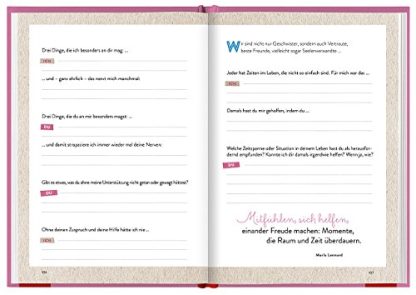 Drei Dinge, die ich besonders an dir mag: ...
ICH
... und – ganz ehrlich – das nervt mich manchmal:
Drei Dinge, die du an mir besonders magst: ...
DU
... und damit strapaziere ich immer wieder mal deine Nerven:
Gibt es etwas, was du ohne meine Unterstützung nicht getan oder gewagt hättest?
DU
Ohne deinen Zuspruch und deine Hilfe hätte ich nie ...
ICH
Wir sind nicht nur Geschwister, sondern auch Vertraute,
beste Freunde, vielleicht sogar Seelenverwandte ...
Jeder hat Zeiten im Leben, die nicht so einfach sind. Für mich war das ...
ICH
Damals hast du mir geholfen, indem du ...
Welche Zeitspanne oder Situation in deinem Leben hast du als herausfor-
dernd empfunden? Konnte ich dir damals irgendwie helfen? Wenn ja, wie?
DU
Mitfühlen, sich helfen,
einander Freude machen: Momente,
die Raum und Zeit überdauern.